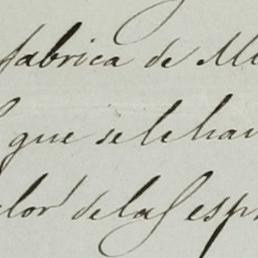 fabrica de M
que se le hav
lor de las esp